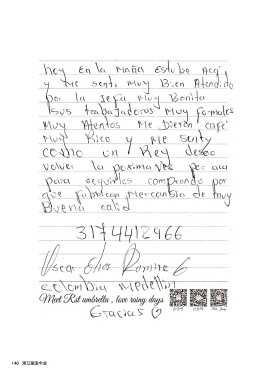 hoy En la Maña Estube Aqi
y Me senti Muy Bien Atendido
por la Jefa Muy Bonita
sus trabajadoras Muy formales
Muy Atentos Me Dieron café
Muy Rico y Me senty
como un Rey deseo
volver la poxima Ves por aca
para seguirles comprando por
que fabrican Mercancia de muy
Buena calid
3174412966
Oscar Elias Ramire G
colombia Medellin
Meet Rst umbrella , love rainy days
Gracias
140 浙江星宝伞业